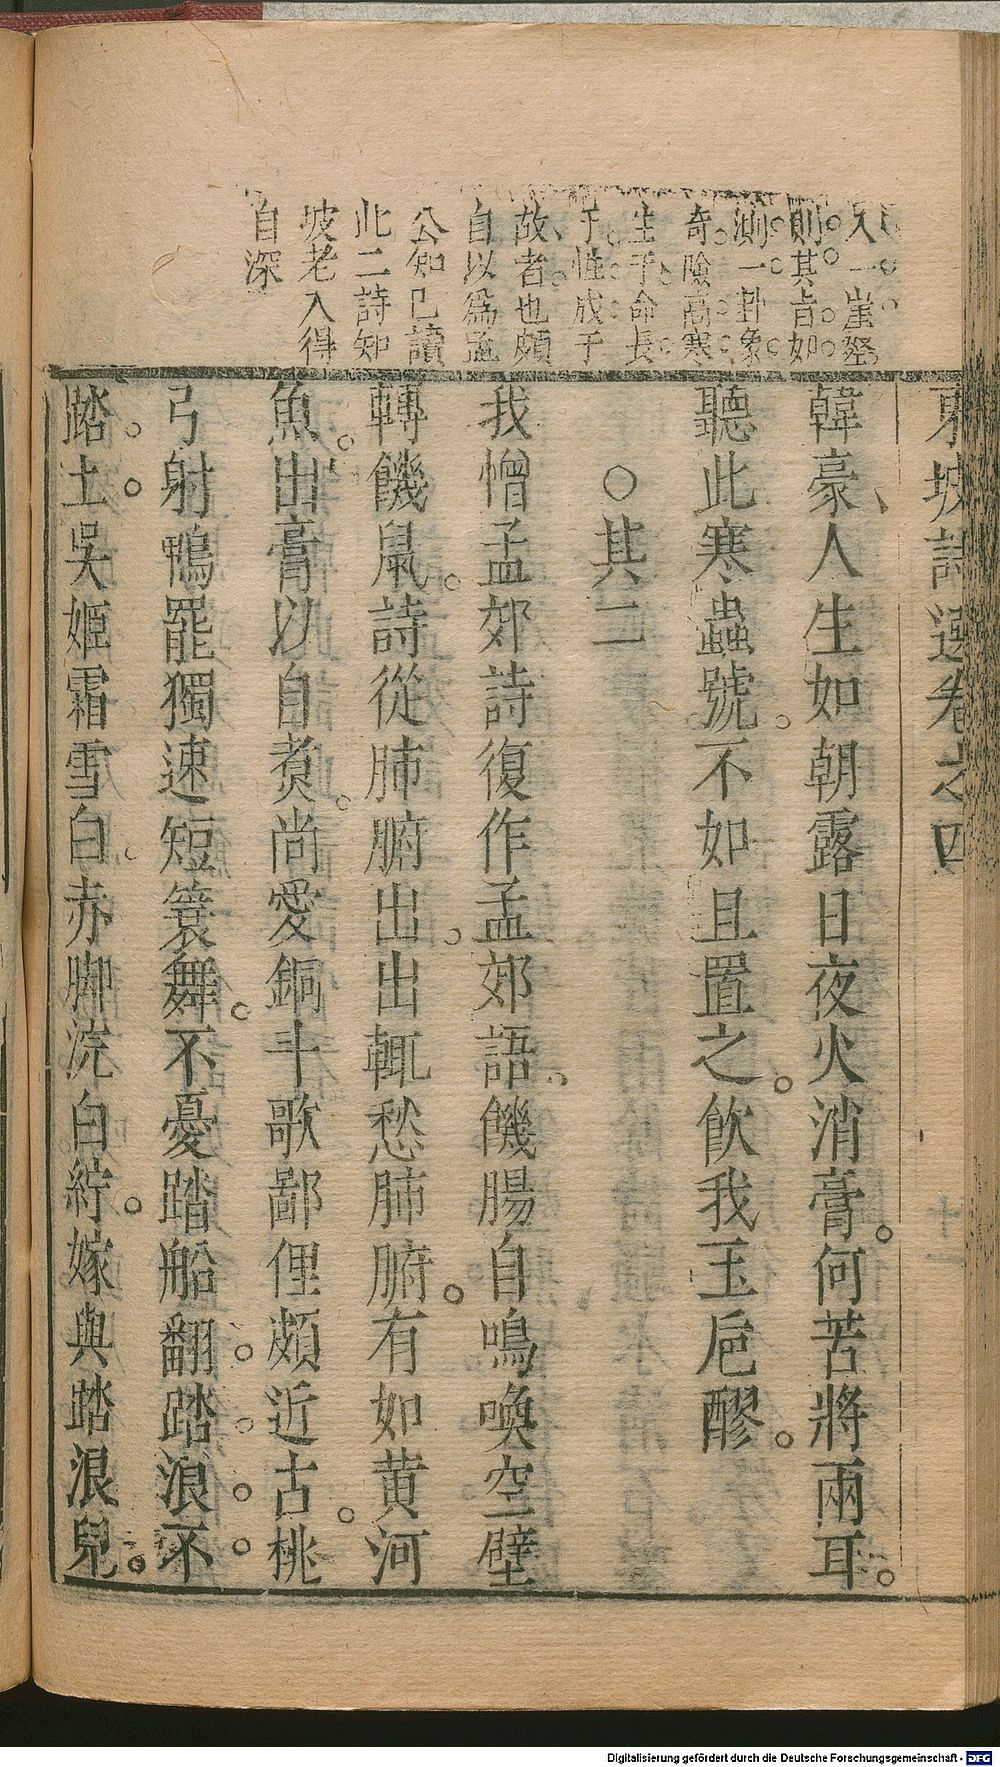 東坡詩選卷之四
韓豪人生如朝露日夜火消膏何苦將兩耳
聽此寒蟲號不如且置之飲我玉巵醪
○其二
我憎孟郊詩復作孟郊語饑腸自鳴喚空壁
轉饑鼠詩從肺腑出出輒愁肺腑有如黃河
魚出膏以自煮尚愛銅斗歌鄙俚頗近古桃
弓射鴨罷獨速短簑舞不憂踏船翻踏浪不
踏土吳姬霜雪白赤脚浣白紵嫁與踏浪兒
入一崖
則其旨如
測一卦象
奇險高寒
生乎命長
于性成于
故者也頗
自以爲孟
公知已讀
此二詩知
坡老入得
自深
Digitalisierung gefördert durch die Deutsche Forschungsgemeinschaft - DFG